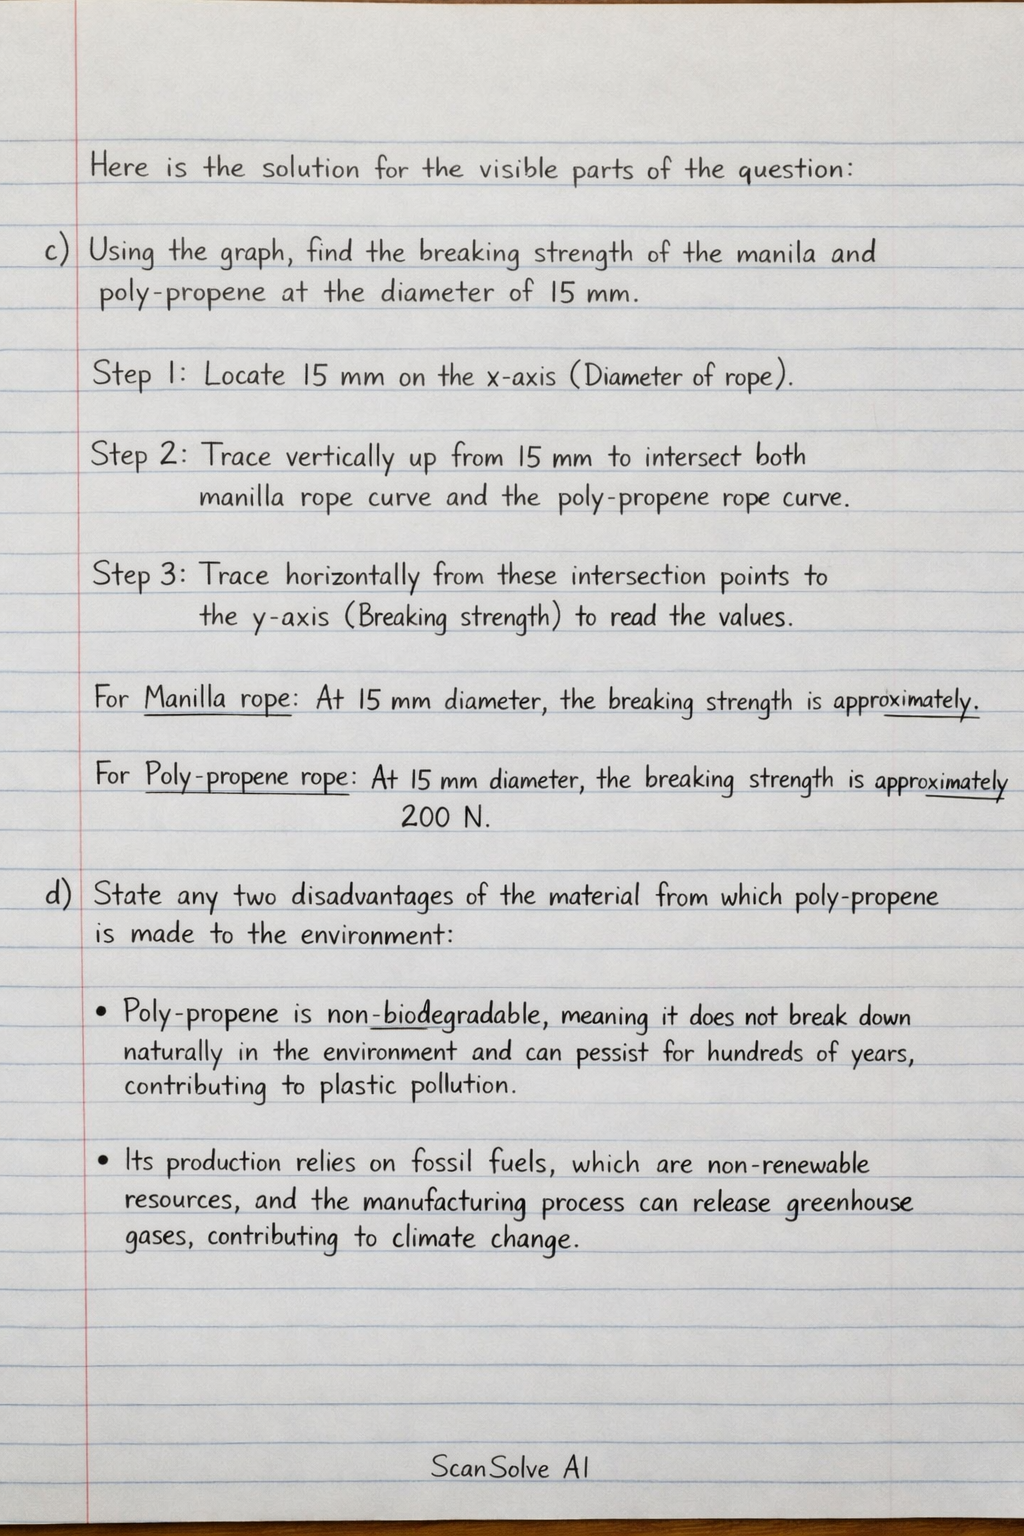 Here is the solution for the visible parts of the question:
c) Using the graph, find the breaking strength of the manila and
poly-propene at the diameter of 15 mm.
Step 1: Locate 15 mm on the x-axis (Diameter of rope).
Step 2: Trace vertically up from 15 mm to intersect both
manilla rope curve and the poly-propene rope curve.
Step 3: Trace horizontally from these intersection points to
the y-axis (Breaking strength) to read the values.
For Manilla rope: At 15 mm diameter, the breaking strength is approximately.
For Poly-propene rope: At 15 mm diameter, the breaking strength is approximately
200 N.
d) State any two disadvantages of the material from which poly-propene
is made to the environment:
• Poly-propene is non-biodegradable, meaning it does not break down
naturally in the environment and can pessist for hundreds of years,
contributing to plastic pollution.
• Its production relies on fossil fuels, which are non-renewable
resources, and the manufacturing process can release greenhouse
gases, contributing to climate change.
ScanSolve AI